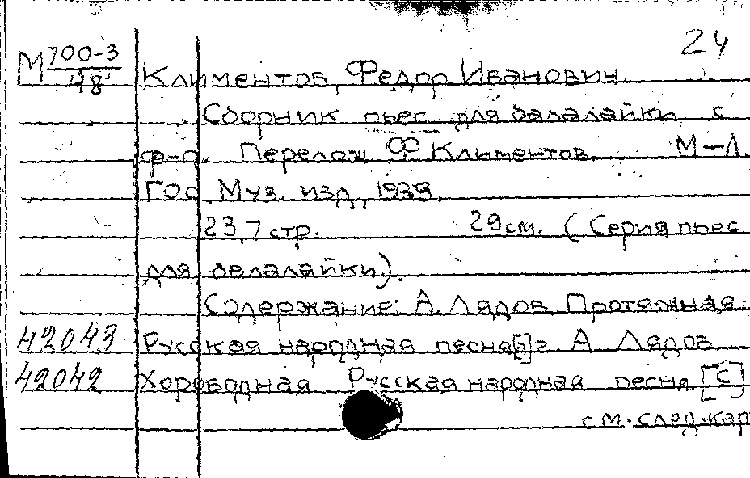 24
М 700-3
48
Климентов, Федор Иванович
Сборник пьес для балалайки с
ф-п. Перелож Ф Климентов. М-Л
Гос Муз. изд, 1939
23,7 стр. 29 см. (Серия пьес
для балалайки).
Содержание: А. Лядов Протяжная.
42043 Русская народная песня[.] А Лядов
42042 Хороводная Русская народная песня [С]
см. след. кар